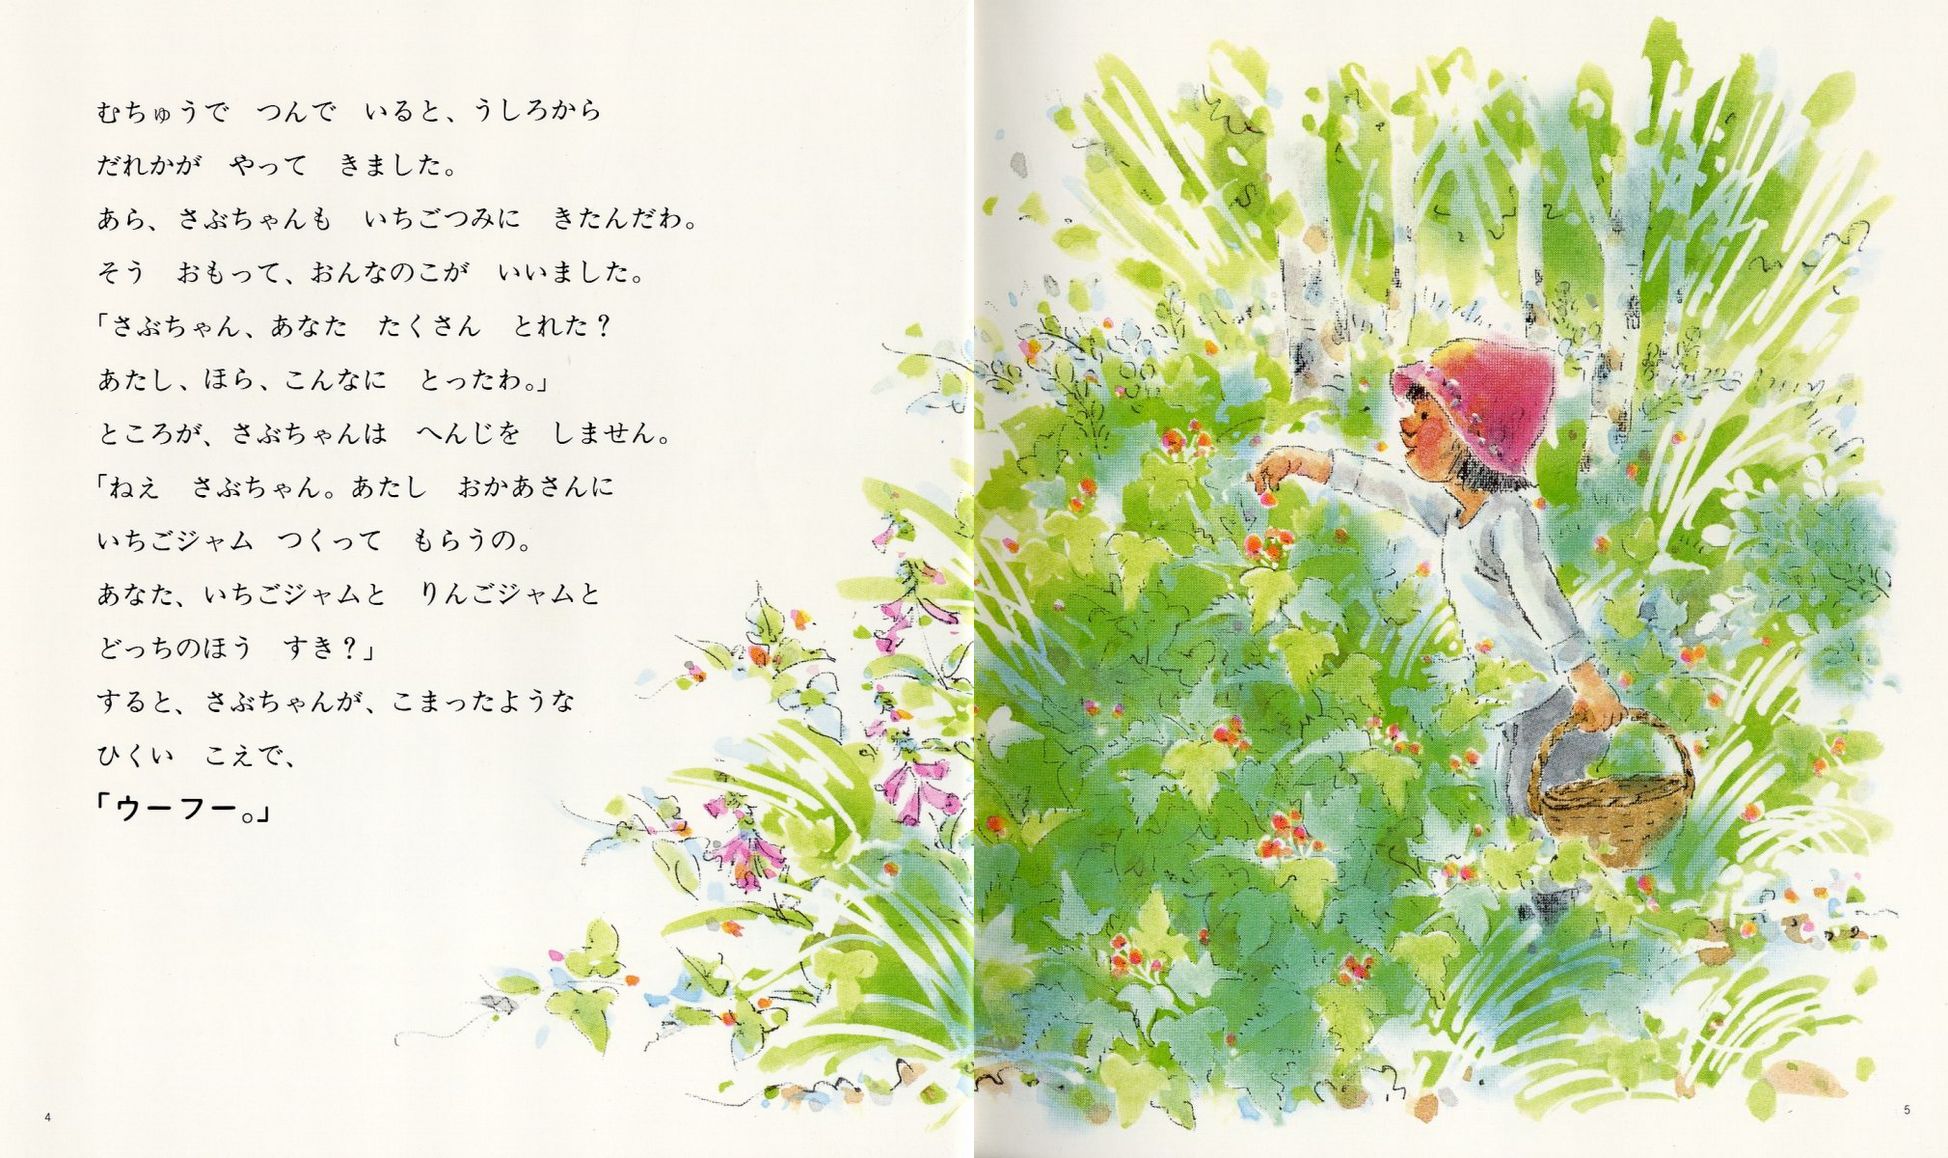 むちゅうで　つんで　いると、うしろから
だれかが　やって　きました。
あら、さぶちゃんも　いちごつみに　きたんだわ。
そう　おもって、おんなのこが　いいました。
「さぶちゃん、あなた　たくさん　とれた？
あたし、ほら、こんなに　とったわ。」
ところが、さぶちゃんは　へんじを　しません。
「ねえ　さぶちゃん。あたし　おかあさんに
いちごジャム　つくって　もらうの。
あなた、いちごジャムと　りんごジャムと
どっちのほう　すき？」
すると、さぶちゃんが、こまったような
ひくい　こえで、
「ウーフー。」
4
5